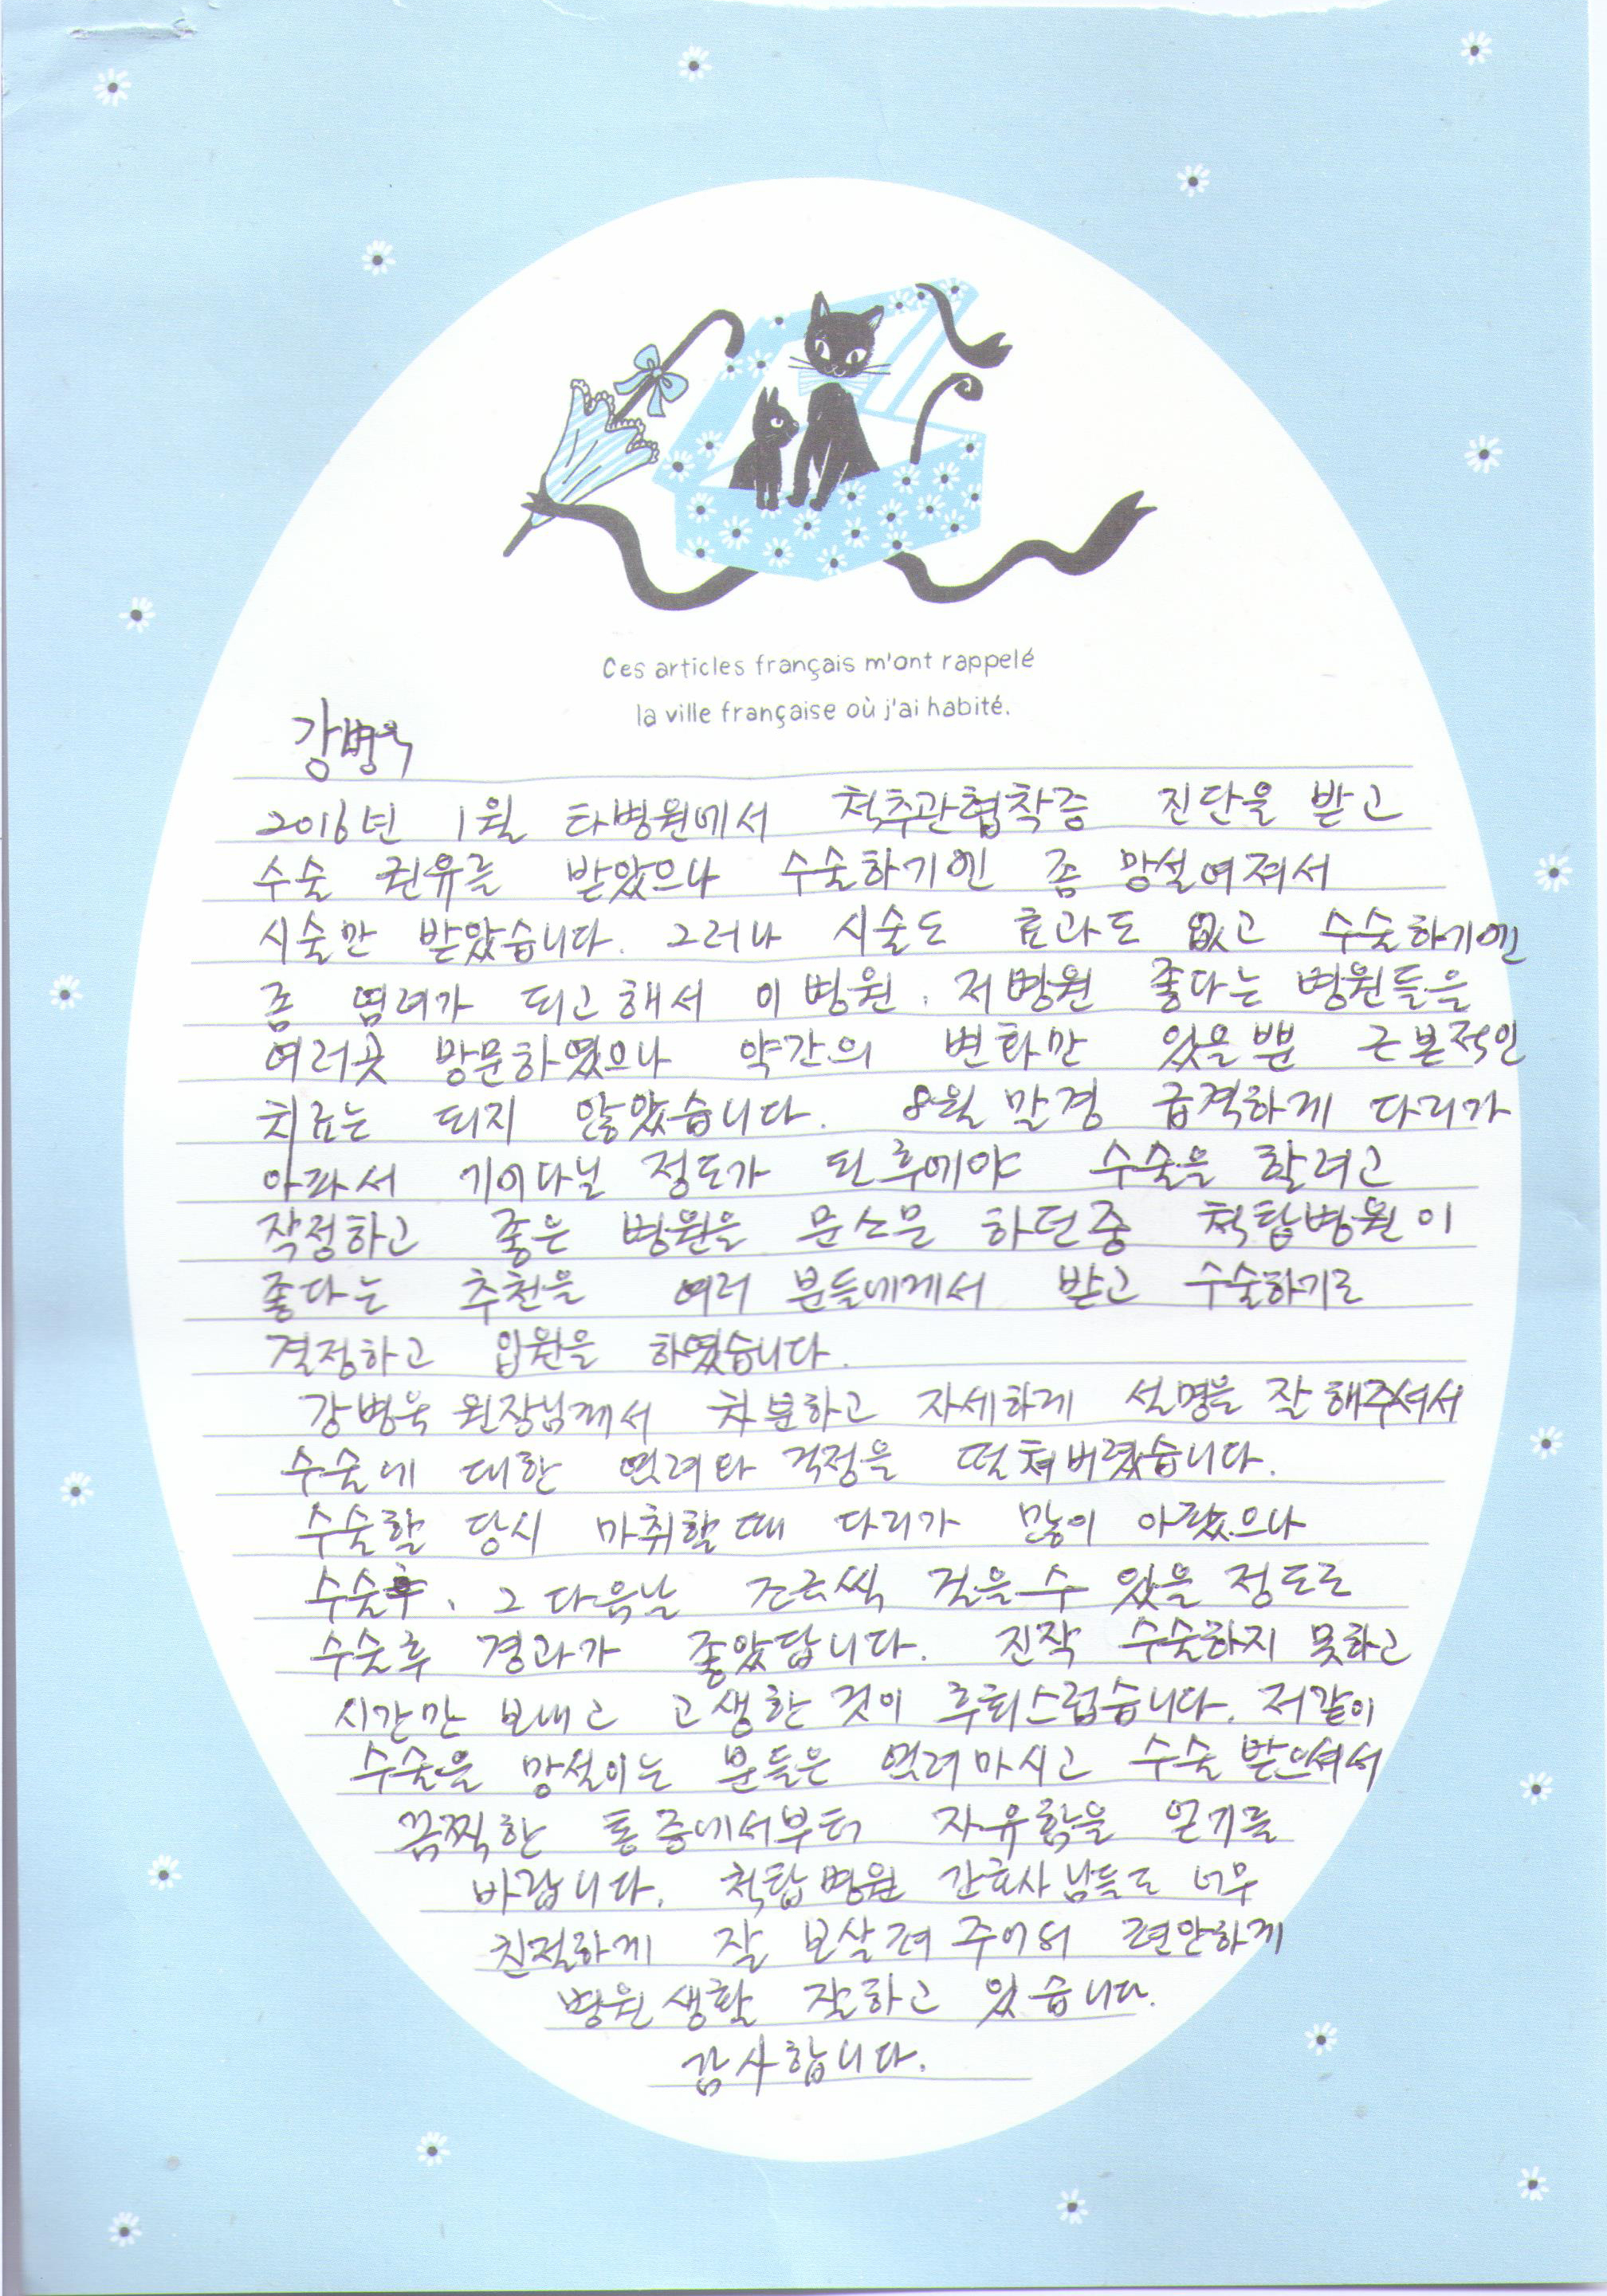 Ces articles français m'ont rappelé
la ville française où j'ai habité.
강병욱
2016년 1월 타병원에서 척추관협착증 진단을 받고
수술 권유를 받았으나 수술하기엔 좀 망설여져서
시술만 받았습니다. 그러나 시술도 효과도 없고 수술하기엔
좀 염려가 되고 해서 이 병원, 저병원 좋다는 병원들을
여러곳 방문하였으나 약간의 변화만 있을뿐 근본적인
치료는 되지 않았습니다. 8월 말경 급격하게 다리가
아파서 기어다닐 정도가 된 후에야 수술을 할려고
작정하고 좋은 병원을 문소문 하던중 척탑병원이
좋다는 추천을 여러 분들에게서 받고 수술하기로
결정하고 입원을 하였습니다.
강병욱 원장님께서 차분하고 자세하게 설명을 잘 해주셔서
수술에 대한 염려와 걱정을 떨쳐버렸습니다.
수술할 당시 마취할때 다리가 많이 아팠으나
수술후, 그 다음날 조금씩 걸을수 있을 정도로
수술후 경과가 좋았답니다. 진작 수술하지 못하고
시간만 보내고 고생한 것이 후회스럽습니다. 저같이
수술을 망설이는 분들은 염려마시고 수술 받으셔서
끔찍한 통증에서부터 자유함을 얻기를
바랍니다. 척탑병원 간호사님들도 너무
친절하게 잘 보살펴 주어서 편안하게
병원생활 잘하고 있습니다.
감사합니다.